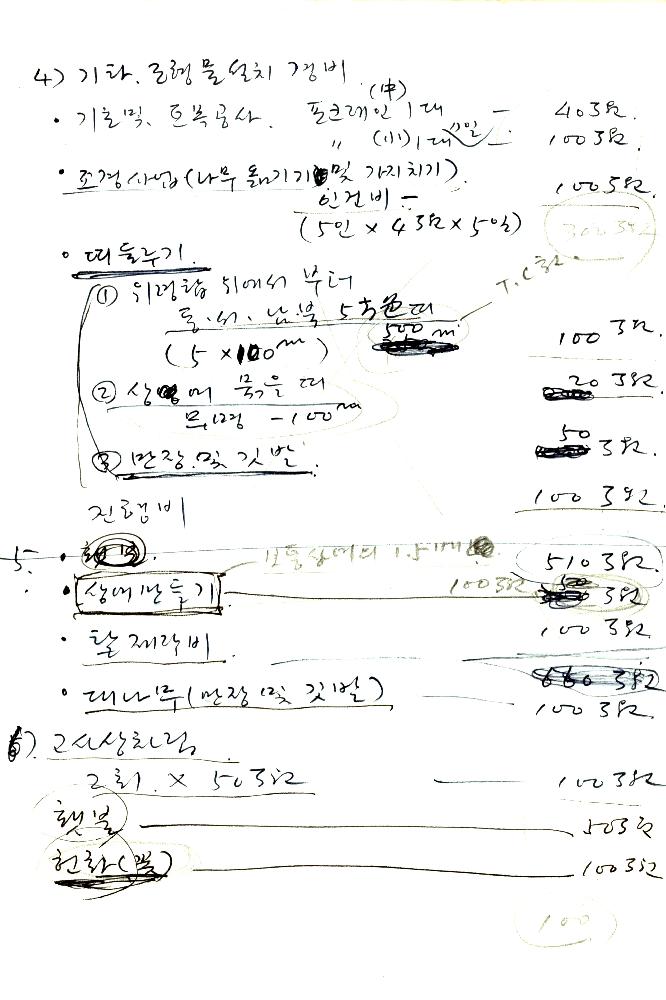 4) 기타. 조형물설치 경비
(中)
• 기초 및. 토목공사. 포크레인 1대 — 40만원.
〃 (小) 1대 — 100만원.
• 조경사업(나무 옮기기 및 가지치기).
인건비 — 100만원
(5인 × 4만원 × 5일) 300만원
• 띠두르기.
① 위령탑 위에서 부터
동.서.남.북 5색운띠
500 m
(5 × 100m) 100만원.
② 상여에 묶을 띠 20만원.
- 100m
③ 만장 및 깃발. 50만원.
진행비 100만원.
5. 510만원.
• 상여만들기 100만원 50만원
• 탈 제작비 100만원
660만원
• 대나무(만장 및 깃발) 100만원
6). 고사상차림
2회 × 50만원 — 100만원
횃불 — 50만원
헌화(꽃) — 100만원
100